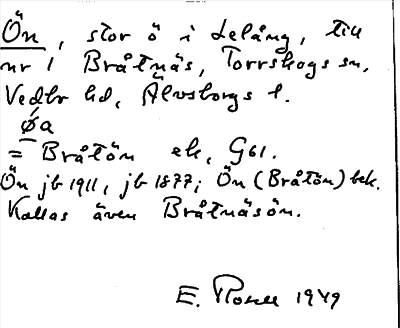 Ön, stor ö i Lelång, till
nr 1 Bråtnäs, Torrskogs sn,
Vedbo hd, Älvsborgs l.
øa
= Bråtön ek, G61.
Ön jb 1911, jb 1877; Ön (Bråtön) bek.
Kallas även Bråtnäsön.
E. 1949